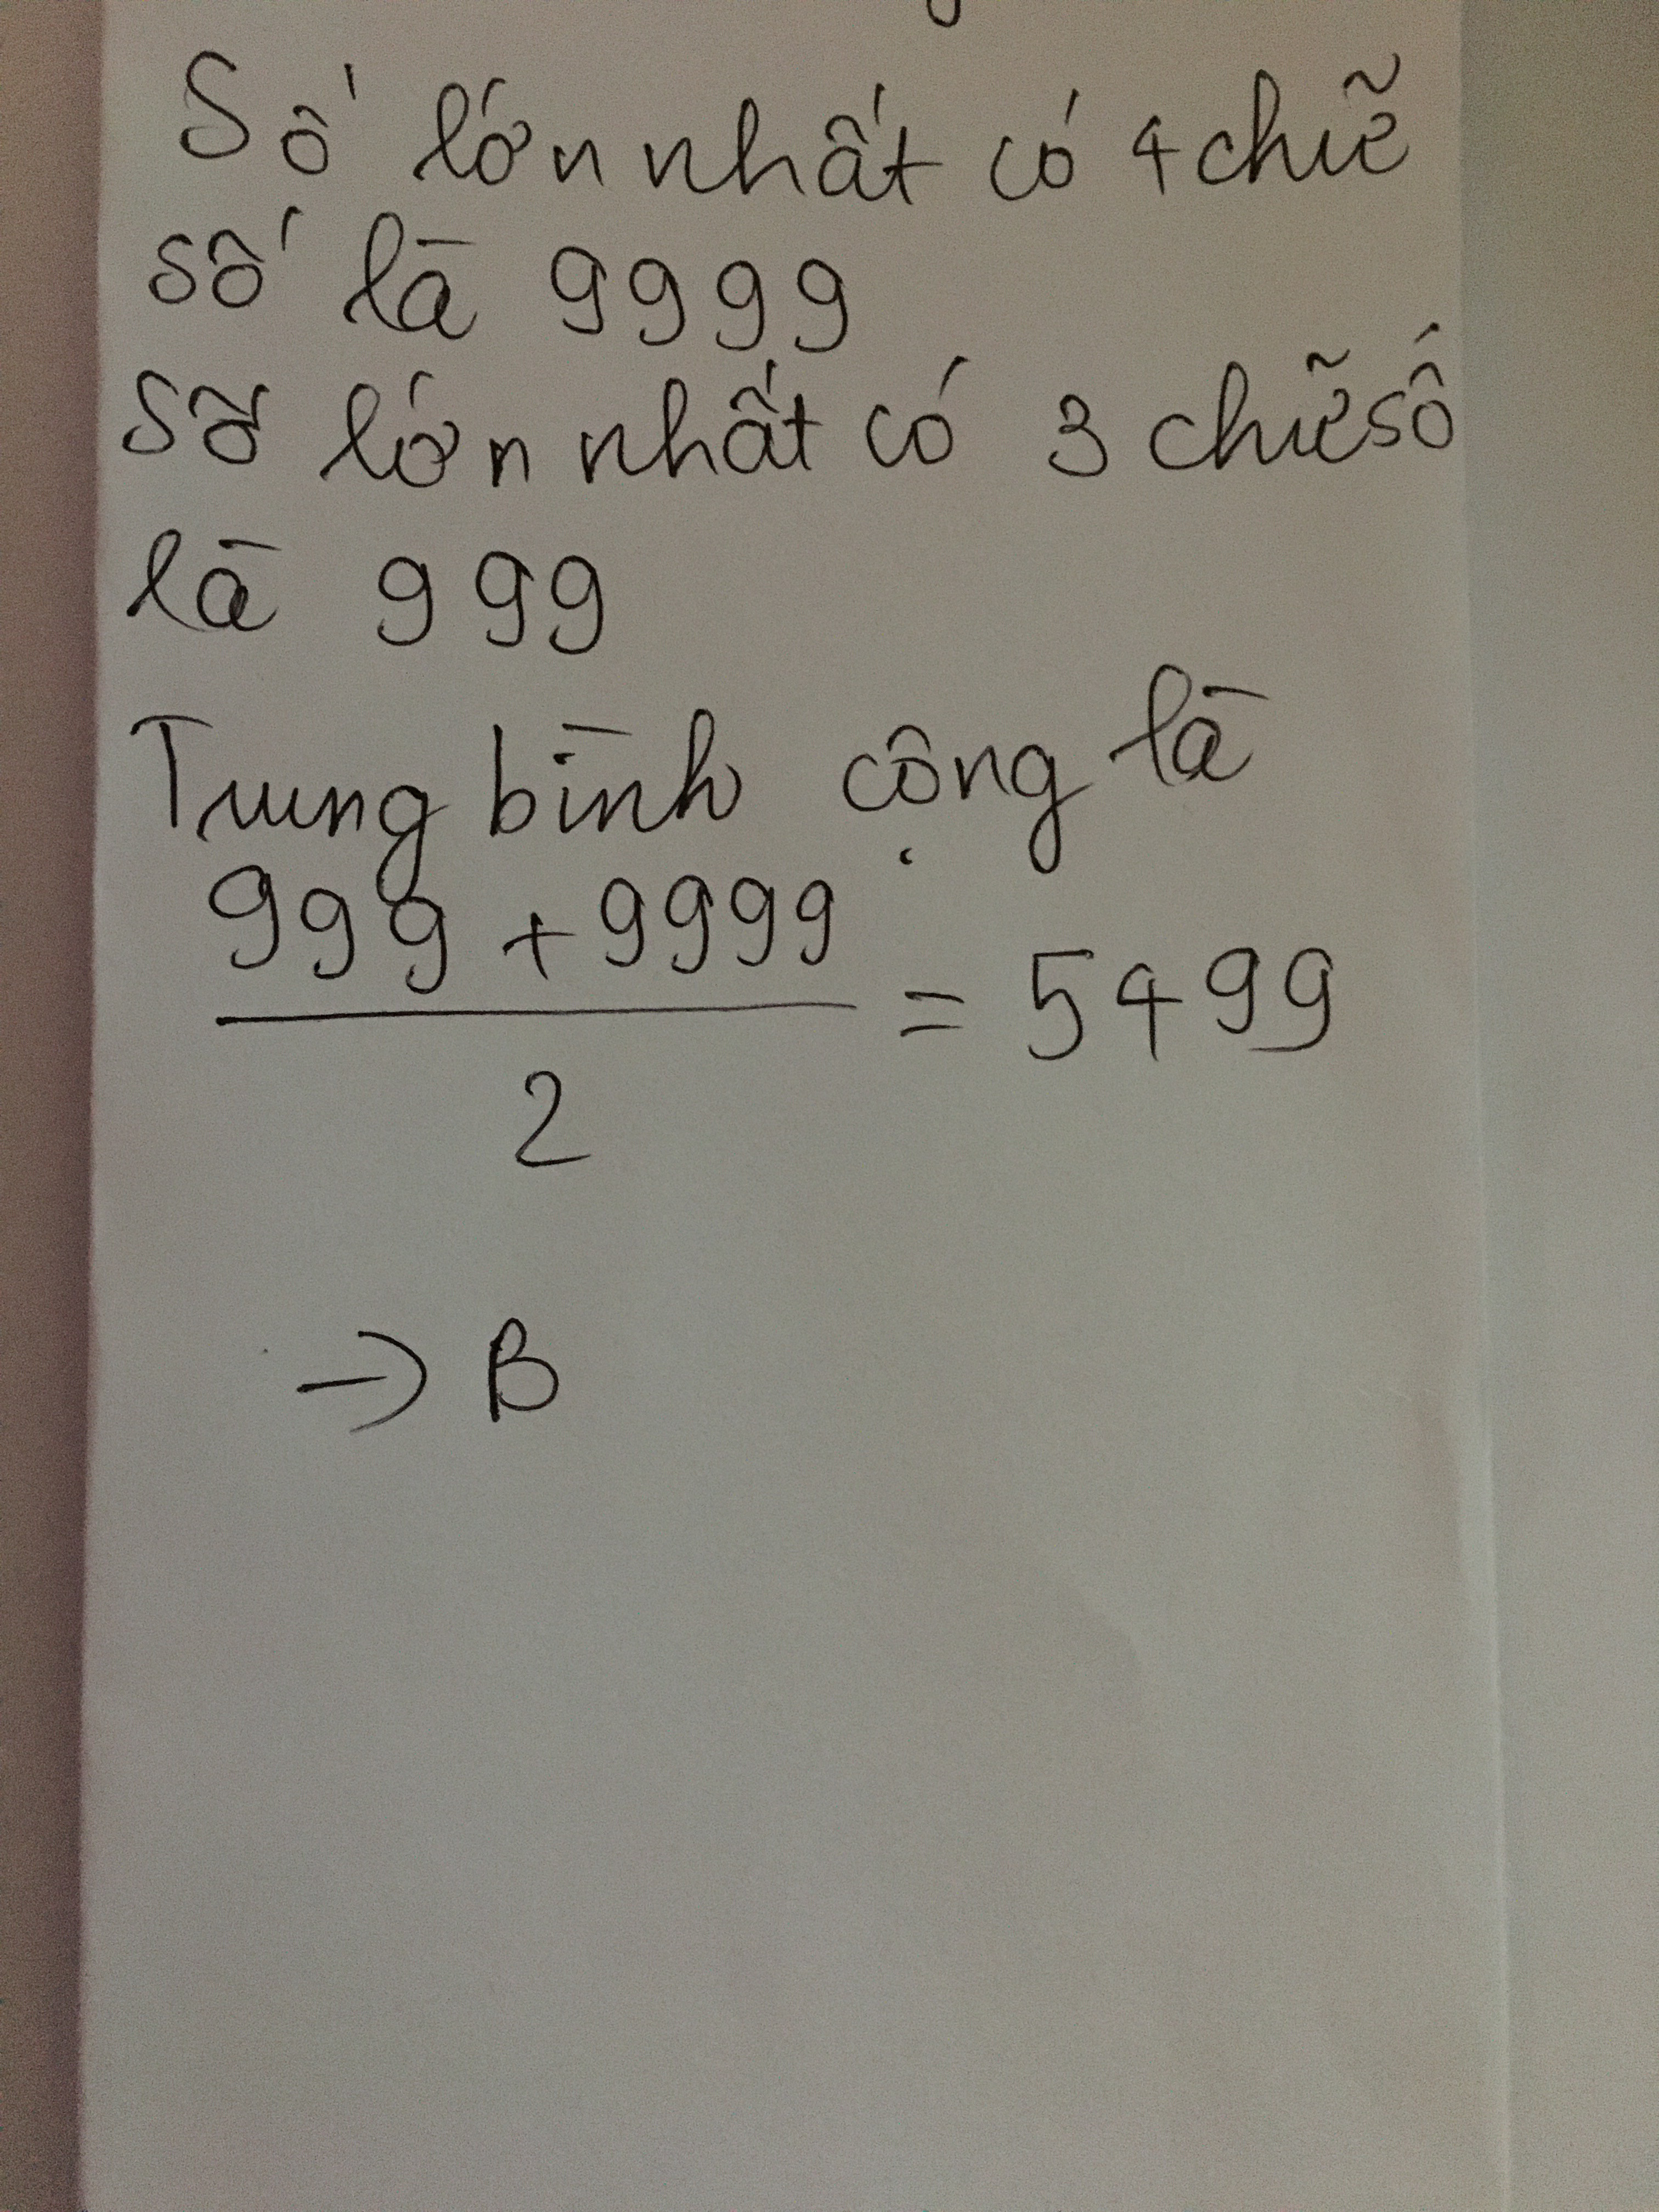 Số lớn nhất có 4 chữ
số là 9999
Số lớn nhất có 3 chữ số
là 999
Trung bình cộng là
999 + 9999
= 5499
2
→ B